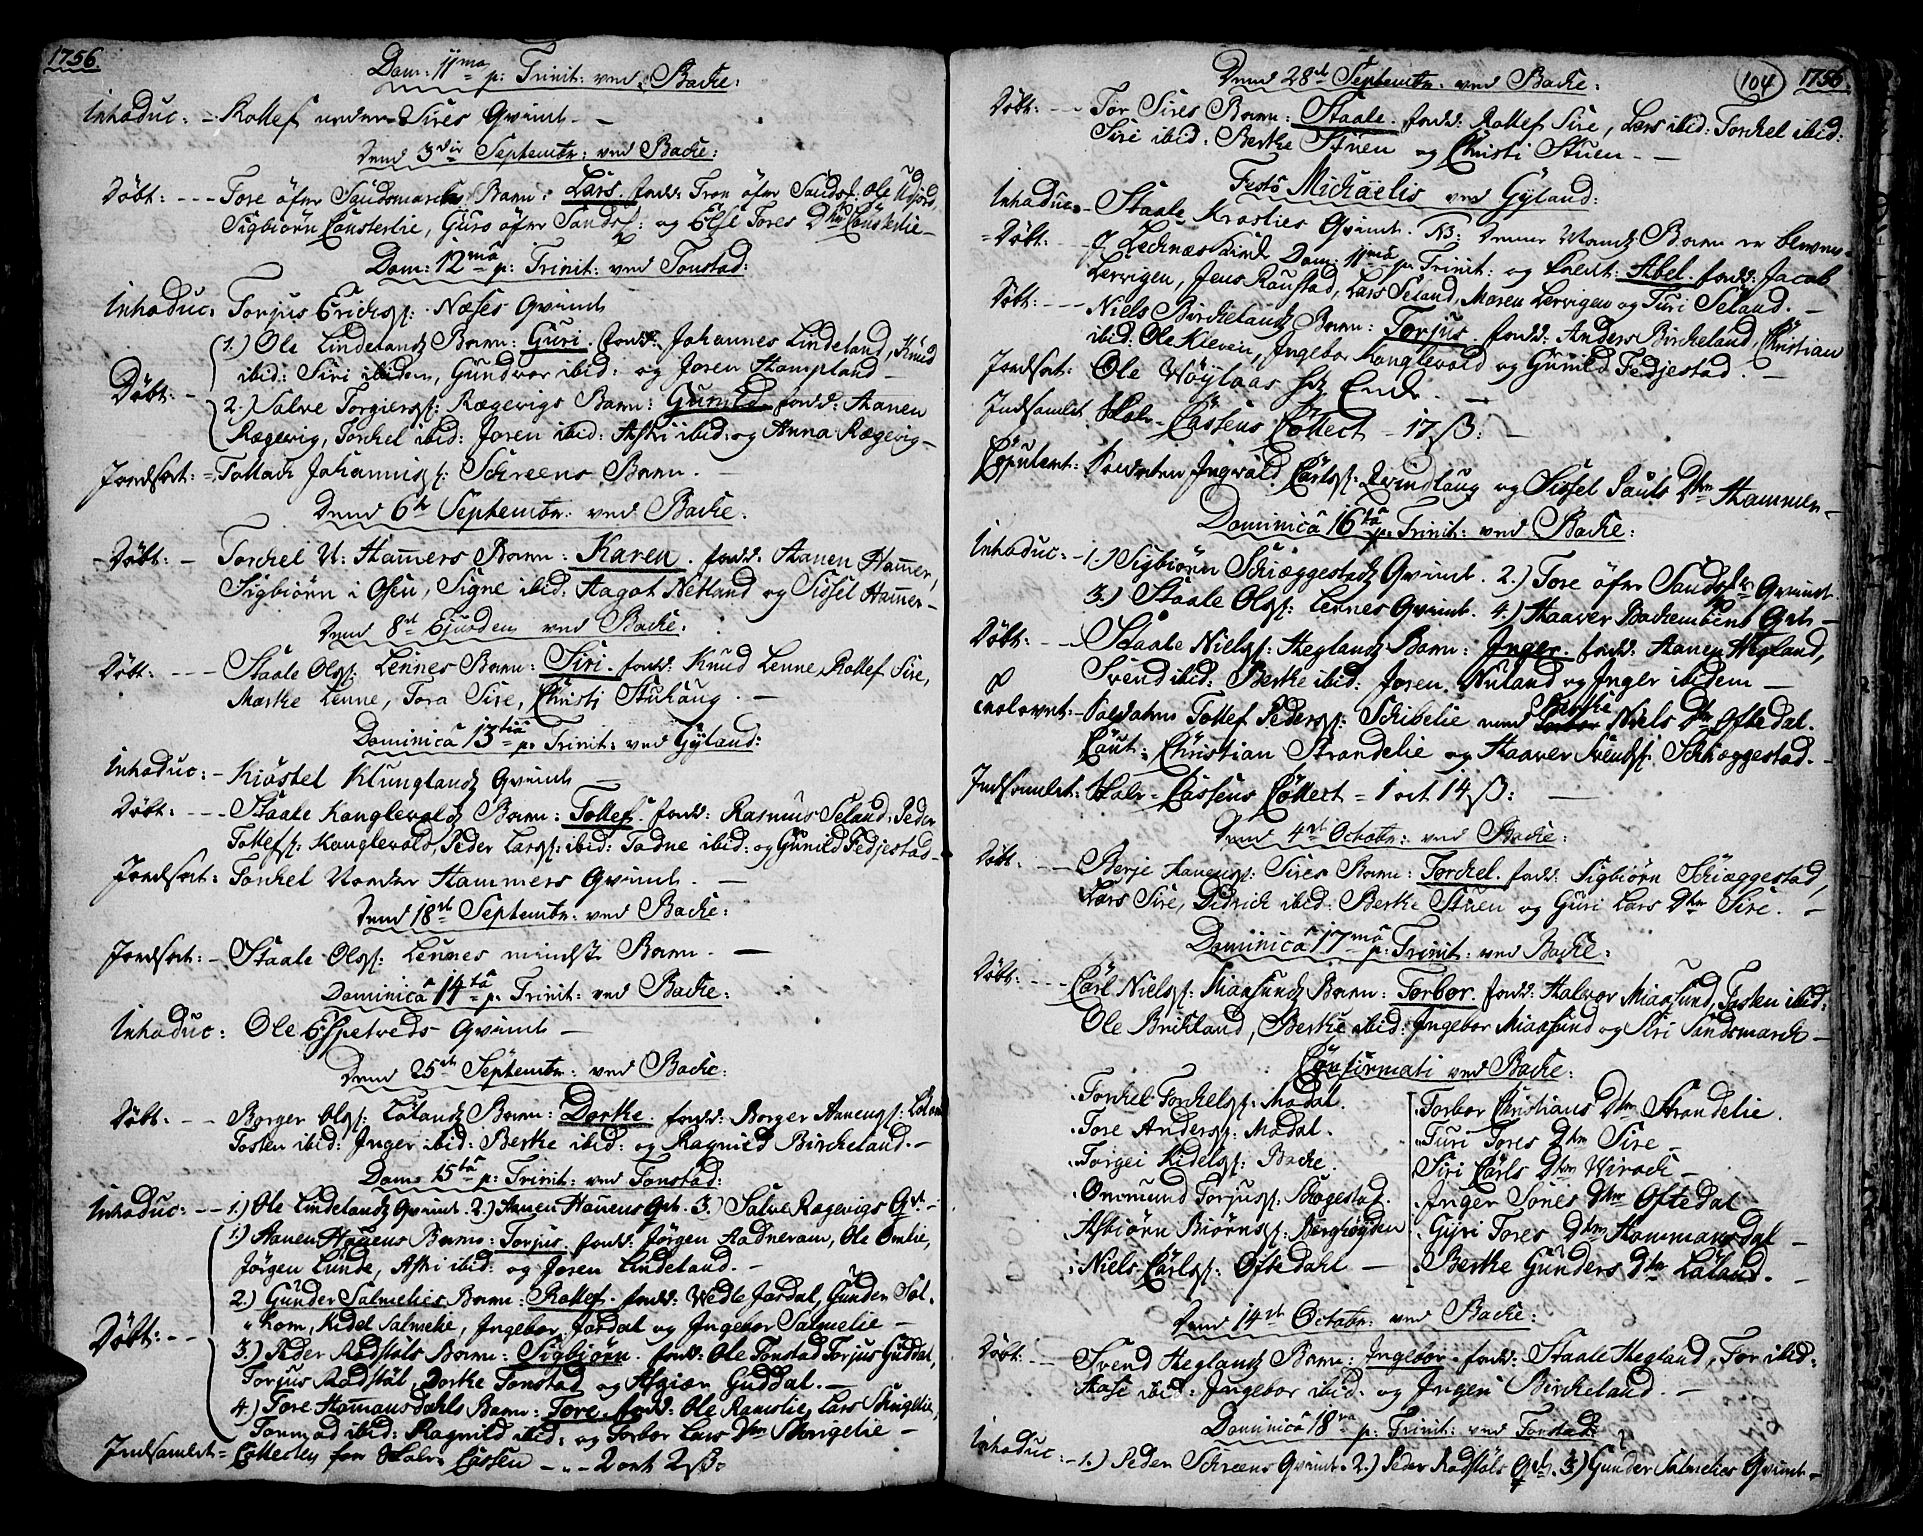 1756
Dom: 11ma p: Trinit: ved Backe:
Inhoduc: - Rollef nedre Sires Qvinde -
Dend 3die Septembr: ved Backe:
Döbt: --- Tore öfre Sandsmarks Barn: Lars. fadd: Tron öfre Sandsm: Ole Udjord,
Sigbiörn Counsterlie, Guro öfre Sands: og Else Tores Dtr
Dom: 12ma p: Trinit: ved Tonstad:
Inhoduc: Torjus Erichss: Næses Qvinde
1.) Ole Lindelands Barn: Guri. fadd: Johannes Lindeland, Knud
ibid: Siri ibidem, Gundvor ibid: og Joren Stampland
Döbt: -
2.) Salve Torgiers: Rægevigs Barn: Gunild. fadd: Hanen
Rægevig, Torckel ibid: Joren ibid: Astri ibid: og Anna Rægevig -
Jordfæst: = Tollach Johannis: Schreens Barn. -
Dend 6te Septembr: ved Backe.
Döbt: - Torckel N: Hamers Barn: Karen. fadd: Hanen Hamer,
Sigbiörn i Osen, Signe ibid: Aagot Netland og Sissel Hamer -
Dend 8de Ejusdem ved Backe:
Döbt: --- Staale Olss: Lennes Barn: Siri. fadd: Knud Lenne, Rollef Sire,
Marthe Lenne, Tora Sire, Christi Stuhaug. -
Dominica 13tia p: Trinit: ved Gyland:
Inhoduc: - Kiöstel Klunglands Qvinde -
Döbt: --- Staale Konglevolds Barn: Tollef. fadd: Rasmus Seland, Peder
Tollefs: Konglevold, Peder Larss: ibid: Tadne ibid: og Gunild Fedjestad -
Jordfæst: Torckel Nordre Hammers Qvinde. -
Dend 18de Septembr: ved Backe:
Jordfæst: - Staale Olss: Lennes mindste Barn. -
Dominica 14ta p: Trinit: ved Backe:
Inhoduc: Ole Espetveds Qvinde -
Dend 25de Septembr: ved Backe:
Döbt: -- Borger Olss: Lölands Barn: Dorthe. fadd: Borger Hanens:
Tosten ibid: Inger ibid: Berthe ibid: og Ragnild Birckeland. -
Dom: 15ta p: Trinit: ved Tonstad:
Inhoduc: -- 1.) Ole Lindelands Qvinde. 2.) Hanen Houens Qvt. 3.) Salve Rægevigs Qvt. -
1.) Hanen Houens Barn: Torjus. fadd: Jörgen Aadneram, Ole Omlie,
Jörgen Lunde, Astri ibid: og Joren Lindeland. -
2.) Gunder Salmelies Barn: Rollef. fadd: Wedle Jordal, Gunder Sal-
Kidel Salmelie, Ingebor Jordal og Ingebor Salmelie -
Döbt: --
3.) Peder Rödstöls Barn: Sigbiörn. fadd: Ole Tonstad, Torjus Guddal,
Torjus Rödstöl, Dorthe Tonstad og Asgier Guddal. -
4.) Tore Homansdahls Barn: Tore. fadd: Ole Ramslie, Lars Skrigelie,
Tormod ibid: Ragnild ibid: og Torbor Lars Dtr Skrigelie -
Indsamlet = Collecten for Skole Cassen - 2 ort 2 ß:
104 1756.
Dend 28de Septembr: ved Backe:
Döbt: -- Tor Sires Barn: Staale. fadd: Rollef Sire, Lars ibid: Torckel ibid:
Siri ibid: Berthe Stuen og Christi Stuen - -
Festo Michaelis ved Gyland:
Inhoduc: - Staale Qvinde. NB: Denne Mands Barn er bleven
= Döbt: Dom: 11ma p: Trinit: og kaldt: Abel. fadd: Jacob
Lervigen, Jens Röustad, Lars Seland, Maren Lervigen og Turi Seland. -
Döbt: -- Niels Birckelands Barn: Torjus. fadd: Anders Birckeland, Christian
ibid: Ole Kleven, Ingebor Konglevold og Gunild Fedjestad. -
Jordfæst: Ole Ende. -
Indsamlet Skole - Cassens Collect - 17 ß: -
Copuleret: Soldaten Ingvald Carlss: og Sissel Pauls Dtr Hammer. -
Dominica 16ta p: Trinit: ved Backe:
Inhoduc: - 1.) Sigbiörn Schiæggestads Qvinde. 2.) Tore öfre Sands: Qvinde.
3.) Staale Olss: Lennes Qvinde. 4.) Haaver Qvt -
Döbt: -- Staale Nielss: Heglands Barn: Inger. fadd: Hanen Hegland,
Svend ibid: Berthe ibid: Joren Nuland og Inger ibidem -
Trolovet: - Soldaten Tollef Peders: Schibelie med Berthe Niels Dtr Oftedal.
Caut: Christian Strandelie og Haaver Svends: Schiæggestad. -
Indsamlet: Skole - Cassens Collect = 1 ort 14 ß: -
Dend 4de Octobr: ved Backe:
Döbt: -- Berje Hanens: Sires Barn: Torckel. fadd: Sigbiörn Schiæggestad,
Lars Sire, Didrich ibid: Berthe Stuen og Guri Lars Dtr Sire. -
Dominica 17ma p: Trinit: ved Backe:
Döbt: --- Carl Nielss: Miaasunds Barn: Torbor. fadd: Halvor Miaasund, Tosten ibid:
Ole Brichland, Berthe ibid: Ingebor Miaasund og Siri Sandsmarck -
Confirmati ved Backe:
Torkel Torkelss: Modal.
Tore Anderss: Modal.
Torgei Kidelss: Backe.
Ommund Torjuss: Schægestad.
Asbiörn Biörnss: Berghöyden
Niels Carlss: Oftedahl -
Torbor Christians Dtr Strandelie.
Turi Tores Dtr Sire -
Siri Carls Dtr Virack -
Inger Tones Dtr Oftedal
Gyri Tores Dtr Hommansdal -
Berthe Gunders Dtr Löland. -
Dend 14de Octobr: ved Backe:
Döbt: -- Svend Heglands Barn: Ingebor. fadd: Staale Hegland, Tor ibid:
Aase ibid: Ingebor ibid: og Inger Birckeland. -
Dominica 18va p: Trinit: ved Tonstad:
Inhoduc: - 1.) Peder Schreens Qvinde. 2.) Peder Rödstöls Qvt. 3.) Gunder Salmelies Qvinde -